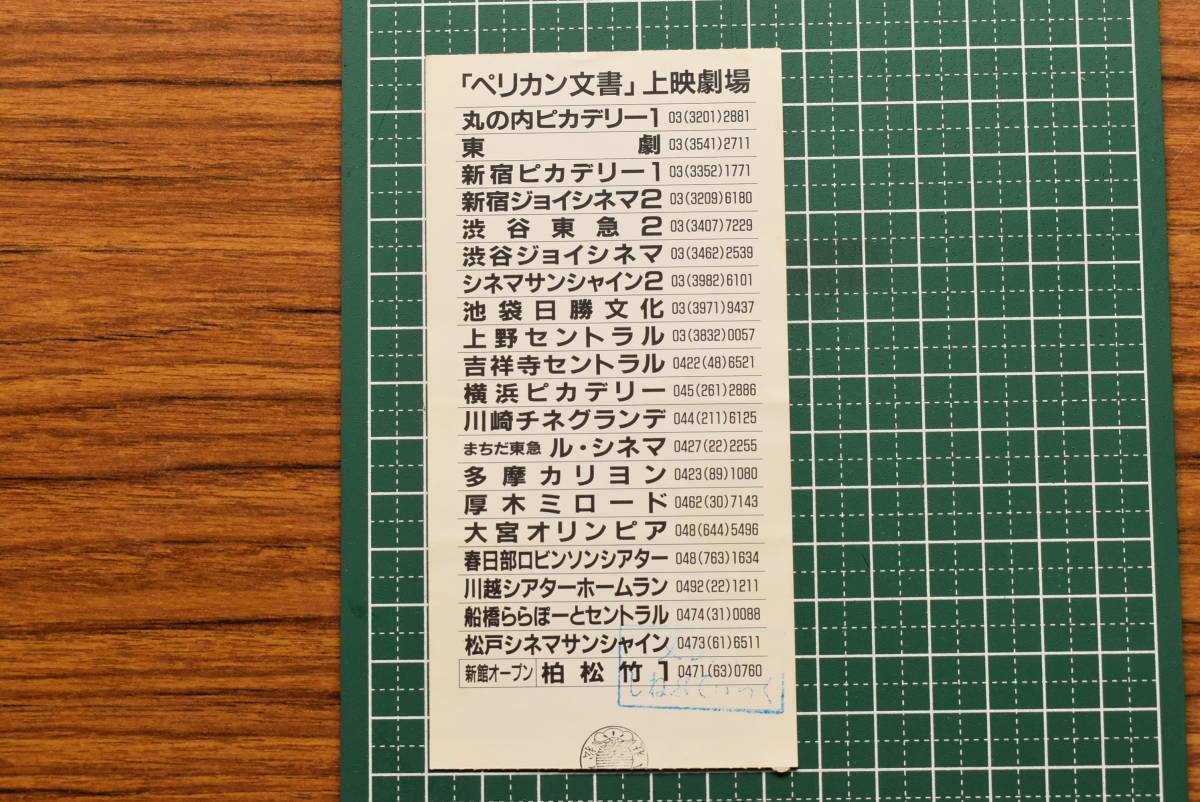 「ペリカン文書」上映劇場
丸の内ピカデリー1 03(3201)2881
東劇 03(3541)2711
新宿ピカデリー1 03(3352)1771
新宿ジョイシネマ2 03(3209)6180
渋谷東急2 03(3407)7229
渋谷ジョイシネマ 03(3462)2539
シネマサンシャイン2 03(3982)6101
池袋日勝文化 03(3971)9437
上野セントラル 03(3832)0057
吉祥寺セントラル 0422(48)6521
横浜ピカデリー 045(261)2886
川崎チネグランデ 044(211)6125
まちだ東急 ル・シネマ 0427(22)2255
多摩カリヨン 0423(89)1080
厚木ミロード 0462(30)7143
大宮オリンピア 048(644)5496
春日部ロビンソンシアター 048(763)1634
川越シアターホームラン 0492(22)1211
船橋ららぽーとセントラル 0474(31)0088
松戸シネマサンシャイン 0473(61)6511
新館オープン 柏松竹1 0471(63)0760